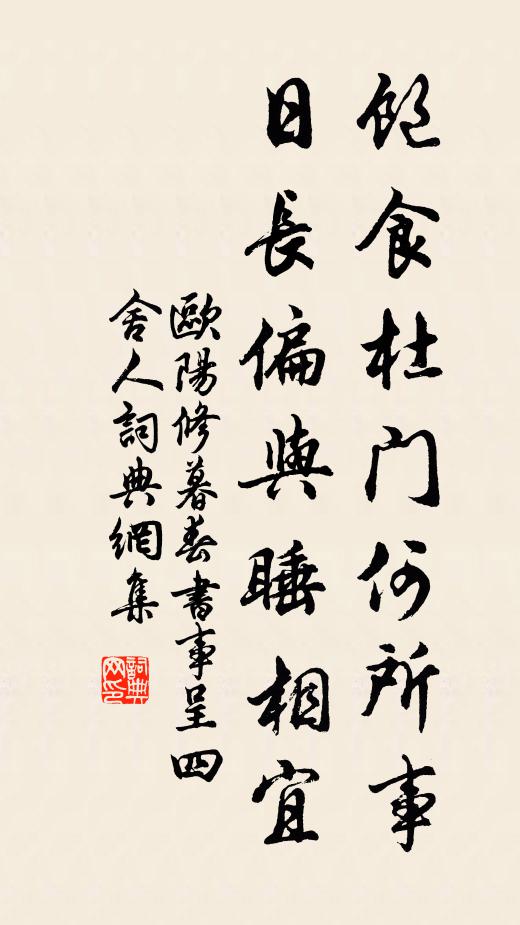 飽食杜門何所事
日長偏與睡相宜
歐陽修暮春書事呈四
舍人詞典網集
詞典網印